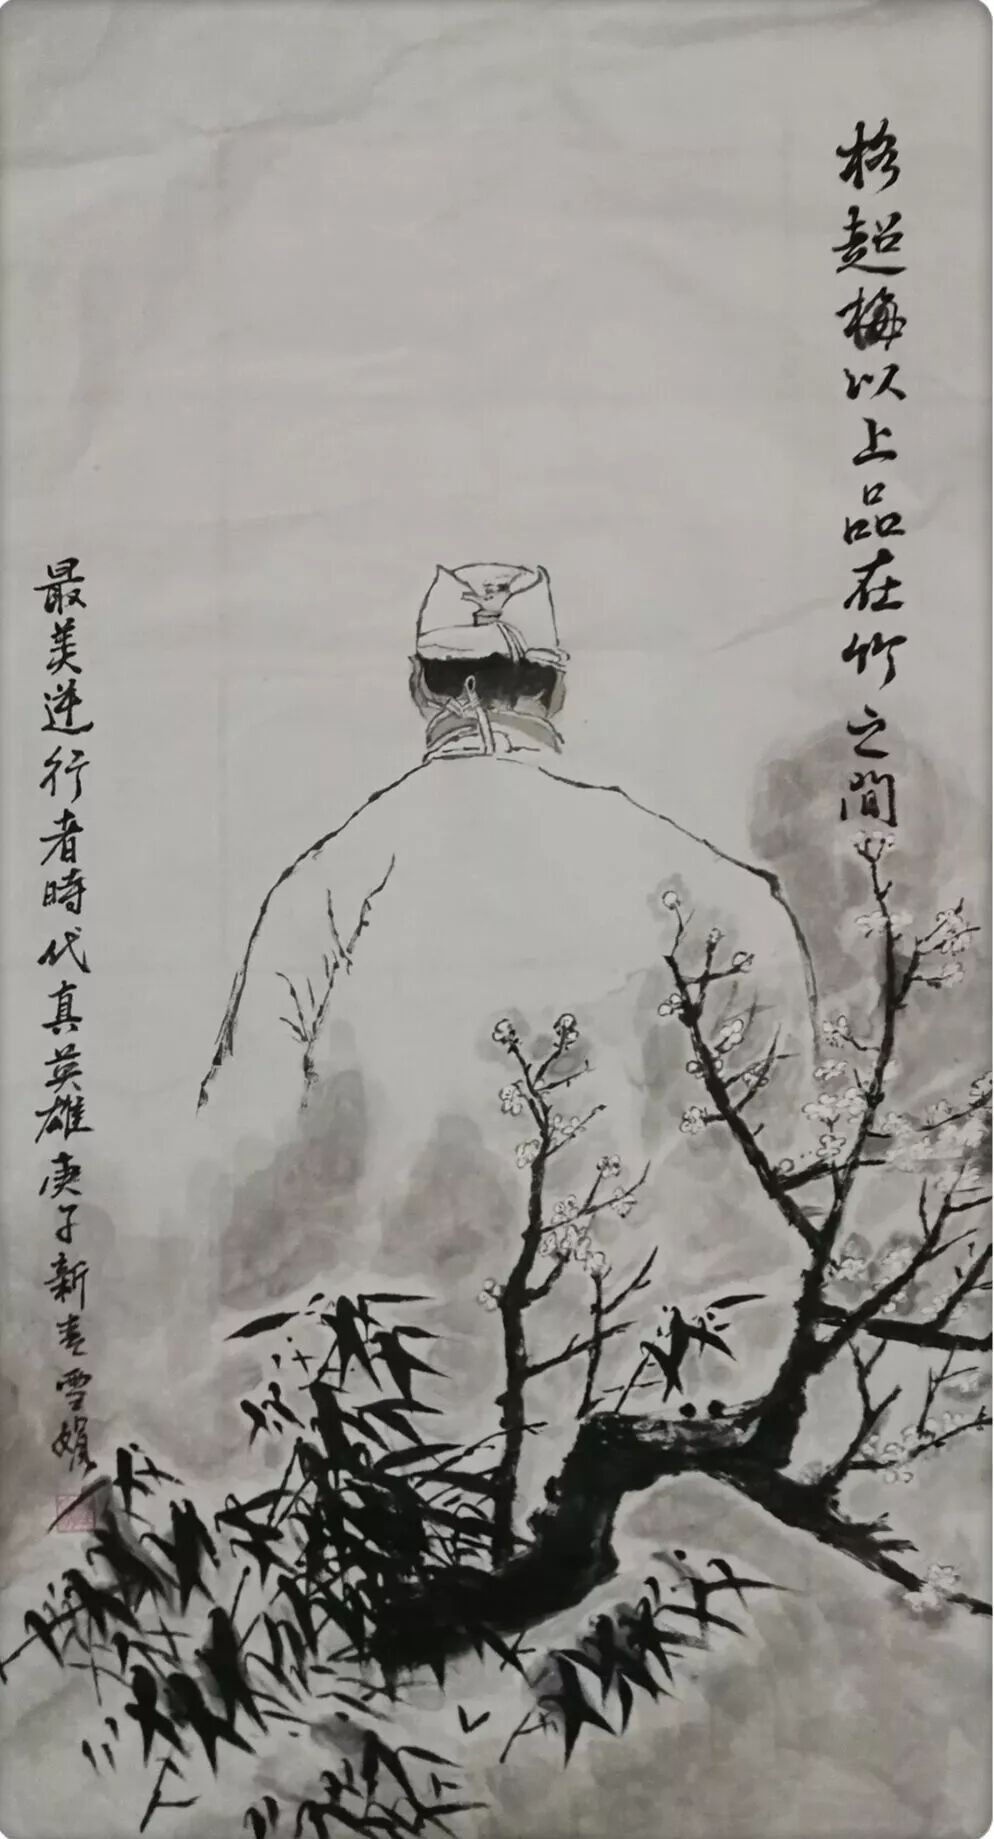 格超梅以上品在竹之間
最美逆行者時代真英雄庚子新春雪娟